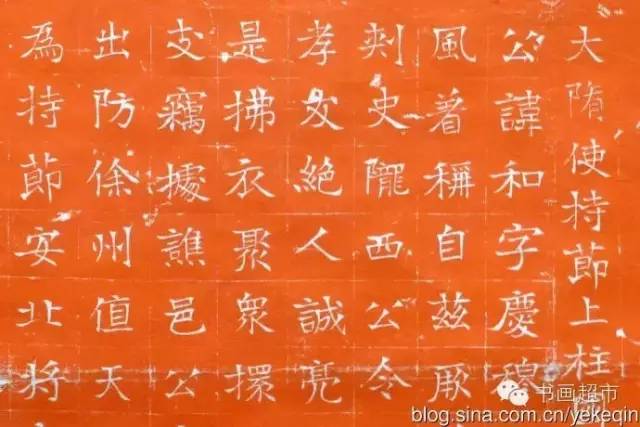 大隋使持節上柱國
公諱和字慶穆
風著稱自茲厥
刺史隴西公令
孝友絕人誠亮
是拂衣聚衆擐
支竊據譙邑公
出防徐州值天
為持節安北将
书画超市
blog.sina.com.cn/yekeqin